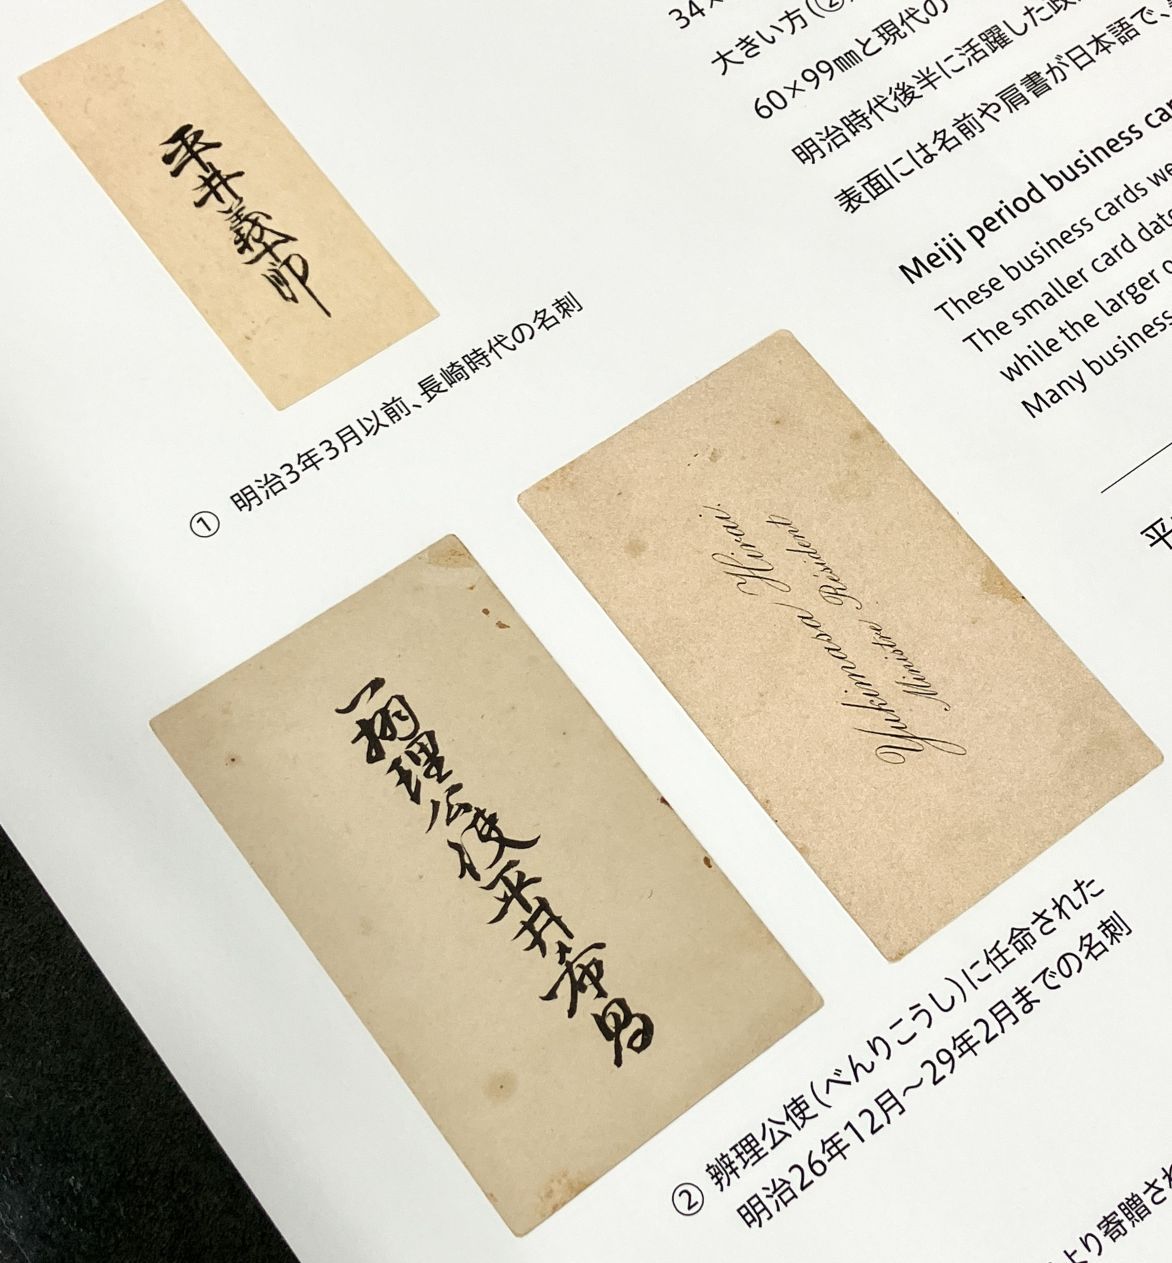 平井義十郎
① 明治3年3月以前、長崎時代の名刺
34×
大きい方(②
60×99㎜と現代の
明治時代後半に活躍した政
表面には名前や肩書が日本語で、
Meiji period business
These business cards
The smaller card
while the larger
Many business
平
辨理公使平井希昌
Yukimasa Hirai.
Ministre Résident
② 辨理公使(べんりこうし)に任命された
明治26年12月~29年2月までの名刺
より寄贈され